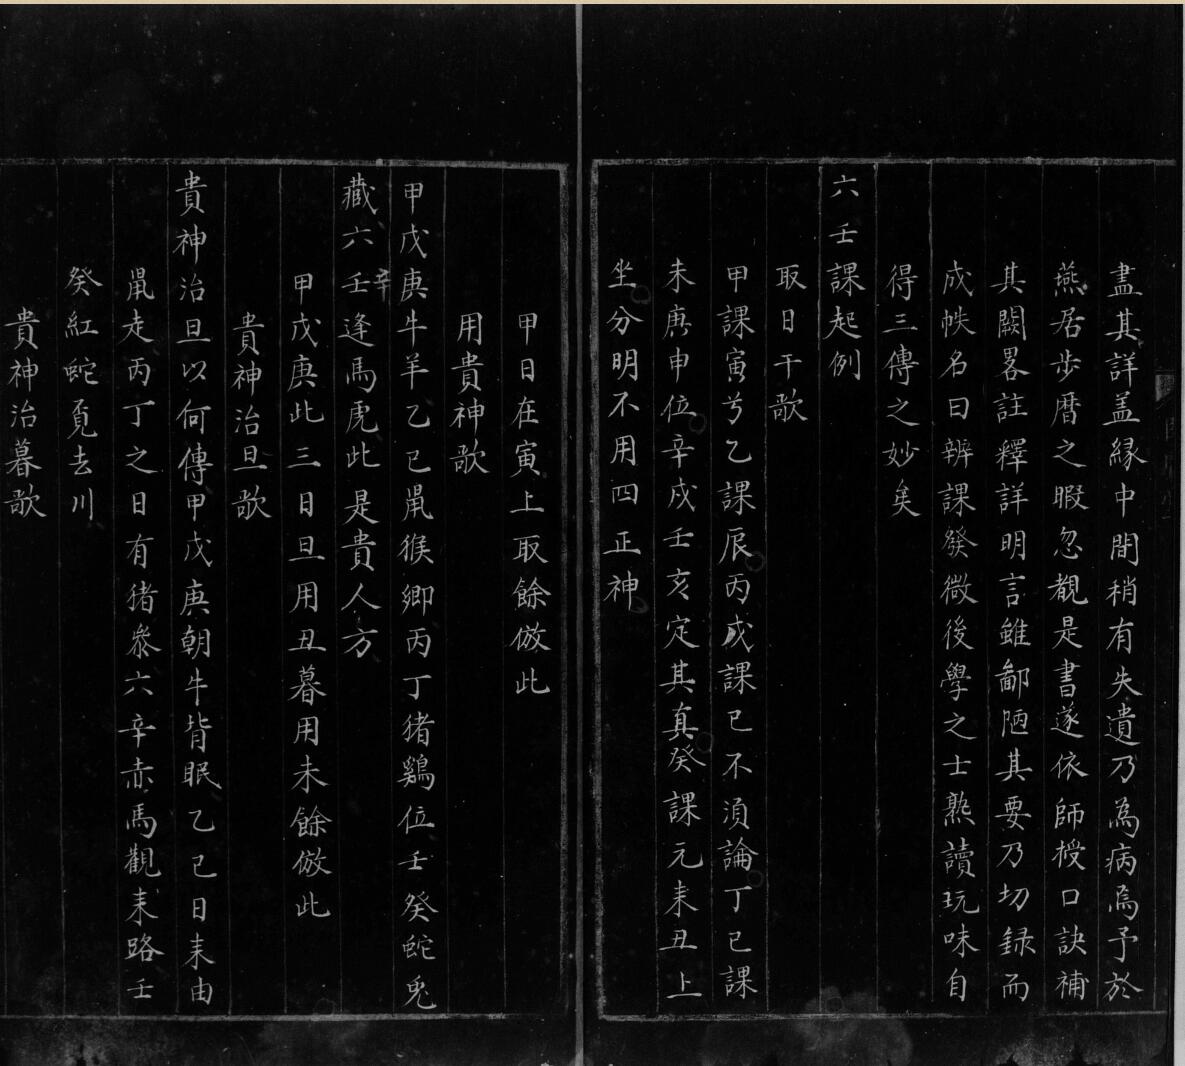 盡其詳盖緣中間稍有失遺乃為病焉予於
燕居步曆之暇忽覩是書遂依師授口訣補
其闕畧註釋詳明言雖鄙陋其要乃切録而
成帙名曰辨課發微後學之士熟讀玩味自
得三傳之妙矣
六壬課起例
取日干歌
甲課寅兮乙課辰丙戊課巳不湏論丁己課
未庚申位辛戌壬亥定其真癸課元来丑上
坐分明不用四正神
甲日在寅上取餘倣此
用貴神歌
甲戊庚牛羊乙己鼠猴卿丙丁猪鷄位壬癸蛇兎
藏六壬辛逢馬虎此是貴人方
甲戊庚此三日旦用丑暮用未餘倣此
貴神治旦歌
貴神治旦以何傳甲戊庚朝牛背眠乙己日来由
鼠走丙丁之日有猪叅六辛赤馬觀来路壬
癸紅蛇覔去川
貴神治暮歌